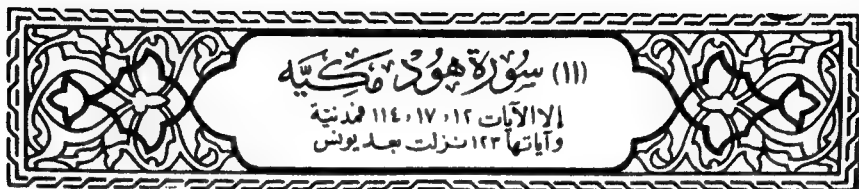 (١١) سُورَة هُود مَكيَّه
إلا الآيات ١٢، ١٧، ١١٤ فمدنية
وآياتها ١٢٣ نزلت بعد يونس